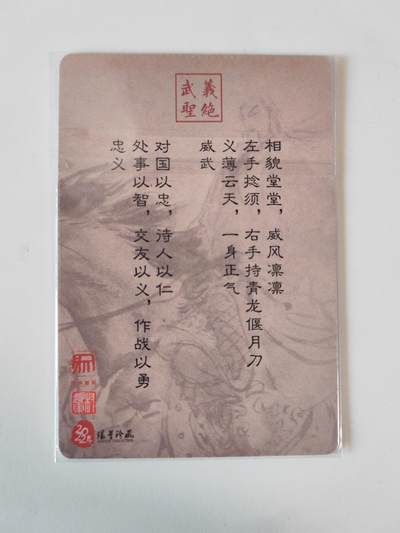 義絕
武聖
相貌堂堂，威风凛凛
左手捻须，右手持青龙偃月刀
义薄云天，一身正气
威武
对国以忠，诗人以仁
处事以智，交友以义，作战以勇
忠义